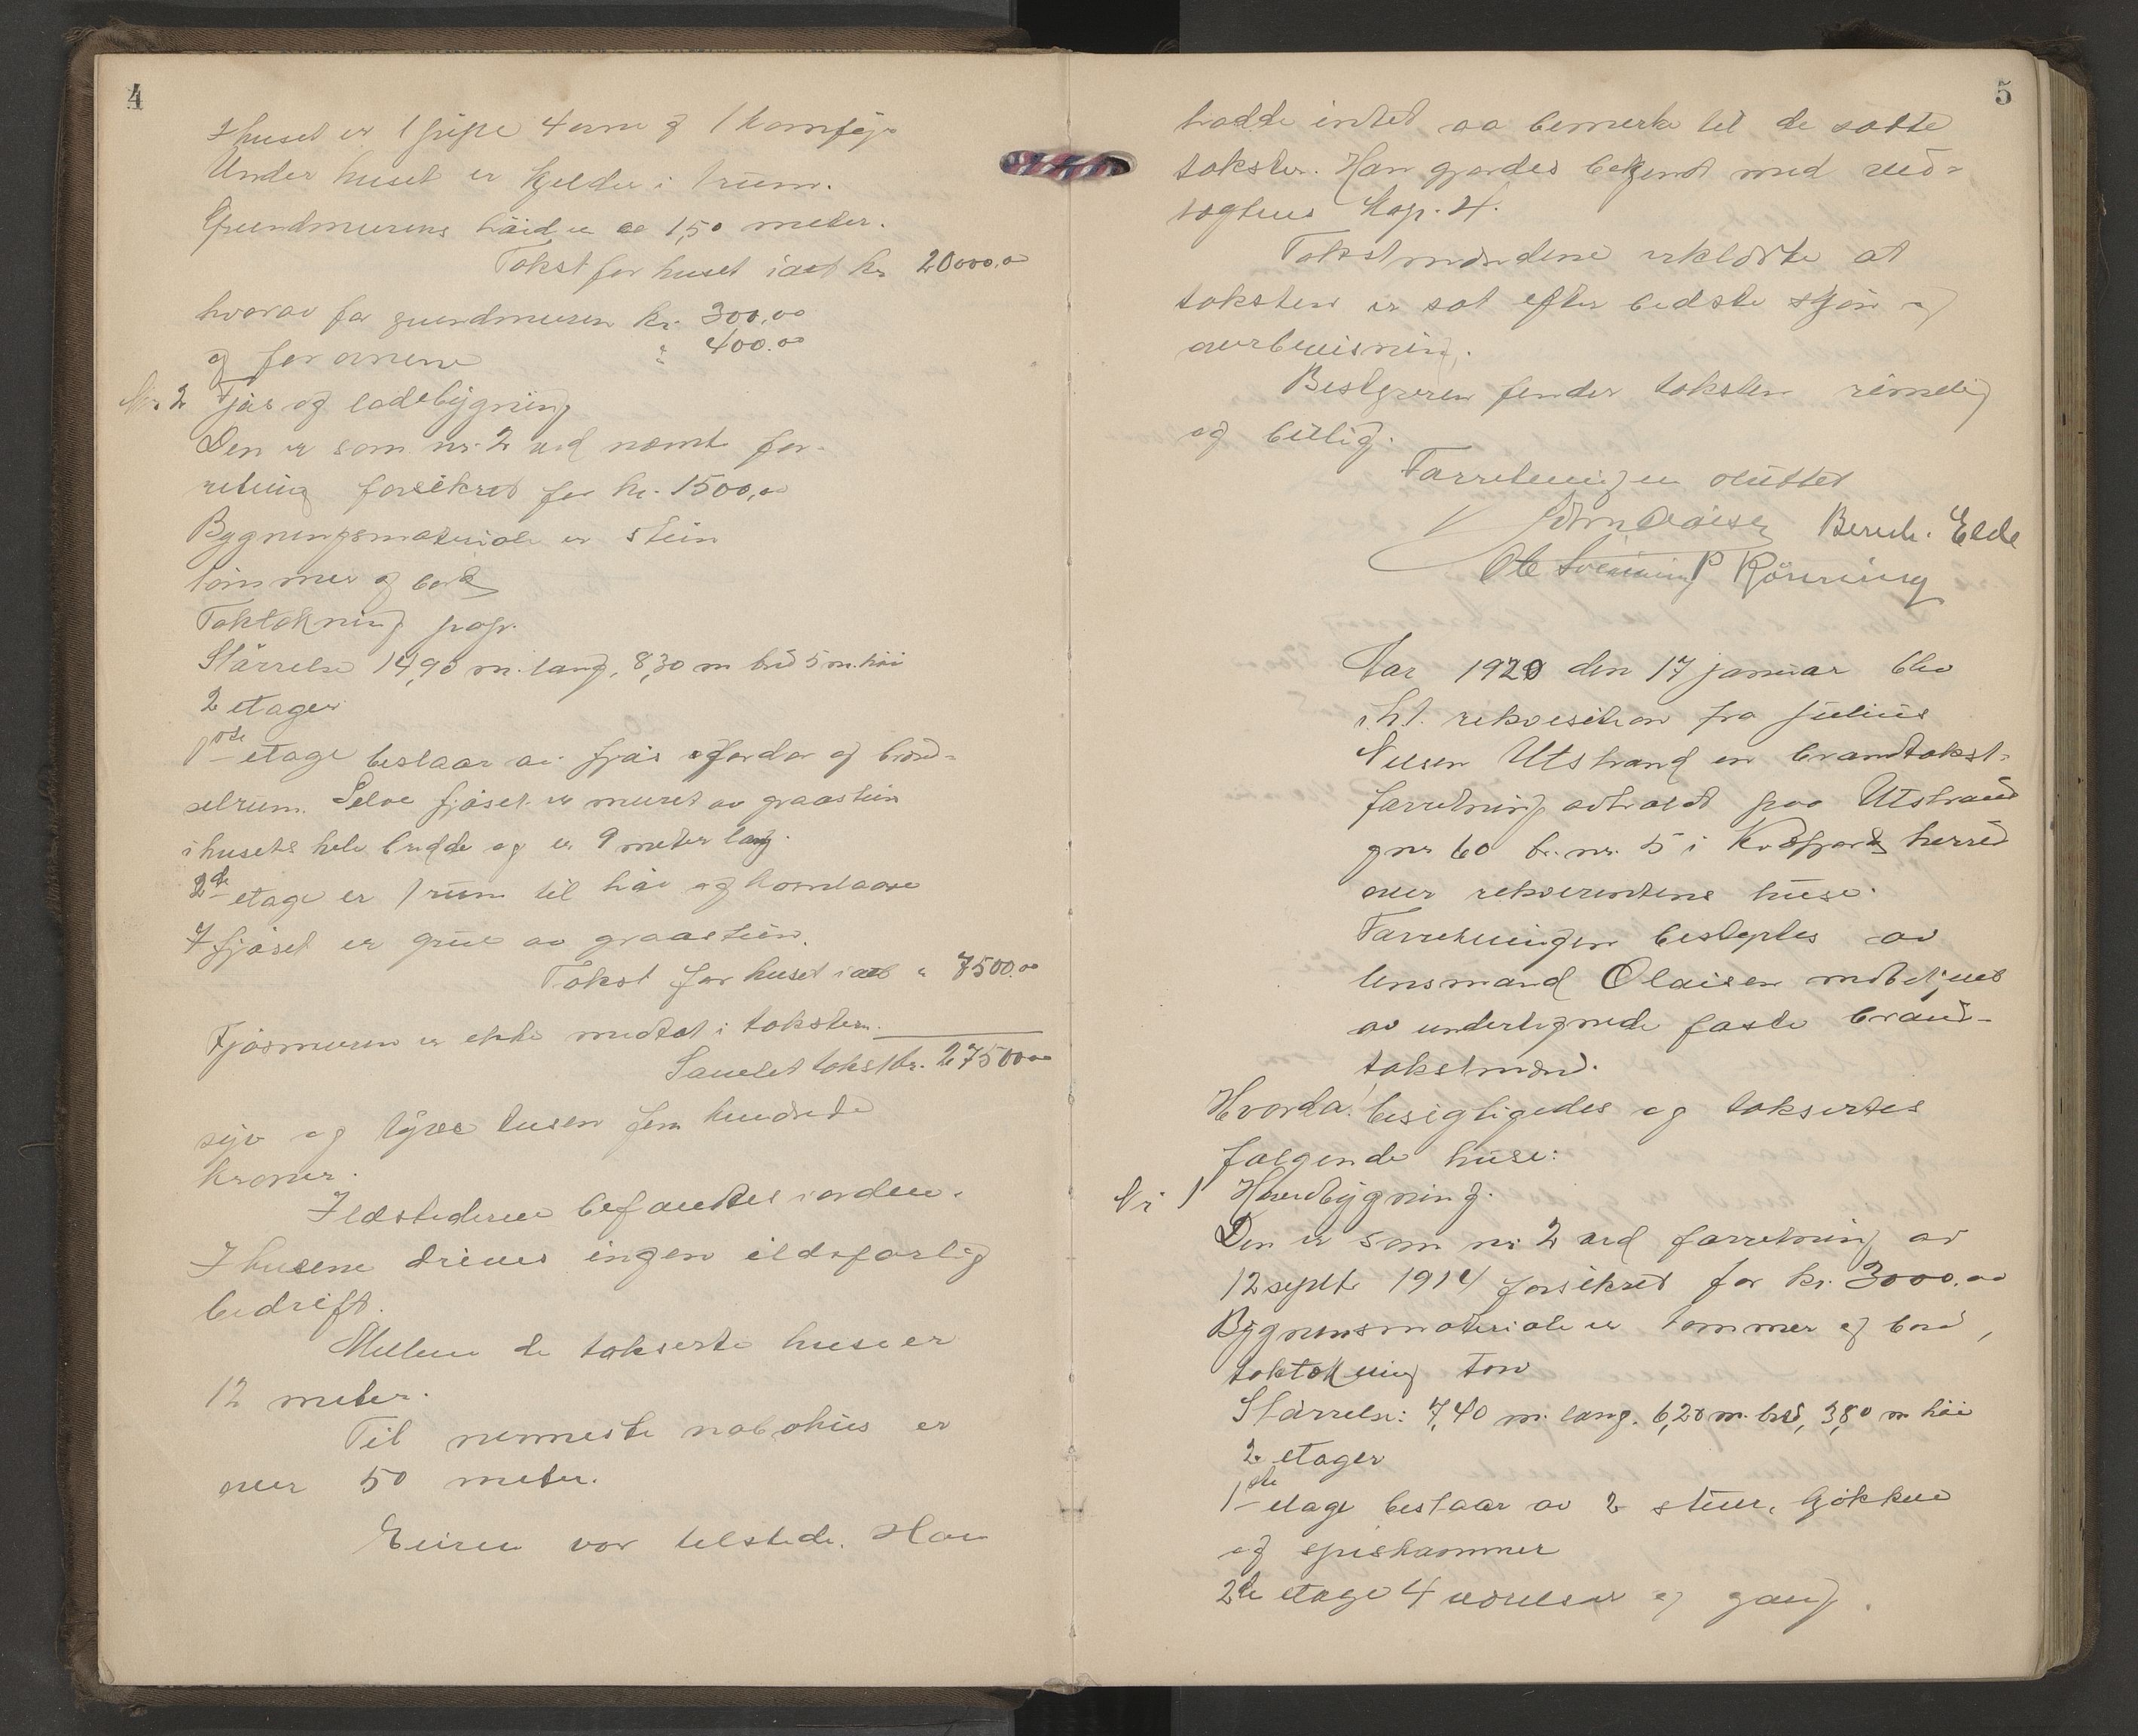 4
I huset er 1 pipe 4 ovne og 1 komfyr
Under huset er kjelder i 1 rum.
Grundmurens høide er ca 1,50 meter.
Takst for huset i alt kr. 20000,00
hvorav for grundmuren kr. 300,00
og for ovnene " 400.00
Nr. 2 Fjøs og ladebygning
Den er som nr. 2 ved nævnt for-
retning forsikret for kr. 1500,00
Bygningsmateriale er stein
tømmer og bord
Taktækning papp.
Størrelse 14,90 m. lang, 8,30 m bred 5 m. høi
2 etager
1ste etage bestaar av fjøs og brænd-
selrum. Selve fjøset er muret av graastein
i husets hele bredde og er 9 meter lang.
2de etage er 1 rum til høi og kornlaave
I fjøset er grue av graastein.
Takst for huset i alt " 7500.00
Fjøsmuren er ikke medtat i taksten.
Samlet takst kr. 27500.00
syv og tyve tusen fem hundrede
kroner.
Ildstederne befandtes i orden.
I husene drives ingen ildsfarlig
bedrift.
Mellem de takserte huse er
12 meter.
Til nærmeste nabohus er
over 50 meter.
Eieren var tilstede. Han
5
hadde intet aa bemerke til de satte
takster. Han gjordes bekjendt med ved-
tægtens Kap. 4.
Takstmændene erklærte at
taksten er sat efter bedste skjøn og
overbevisning.
Bestyreren finder taksten rimelig
og billig.
Forretningen sluttet
John Olaisen Bernh. Elde
Ole P Rönning
Aar 1920 den 17 januar blev
i h.t. rekvisition fra Julius
Nilsen Utstrand en brandtakst-
forretning avholdt paa Utstrand
gnr 60 br. nr. 5 i Kvæfjord herred
over rekvirentens huse.
Forretningen bestyrtes av
lensmand Olaisen med
av undertegnede faste brand-
takstmænd.
Hvorda! besigtigedes og taksertes
følgende huse:
Nr 1 Hovedbygning.
Den er som nr 2 ved forretning av
12 septbr 1914 forsikret for kr. 3000.00
Bygningsmateriale er tømmer og bord,
taktækning torv
Størrelse: 7,40 m. lang. 6,20 m. bred, 3,80 m høi
2 etager
1ste etage bestaar av 2 stuer, kjøkken
og spiskammer
2de etage 4 værelser og gang.